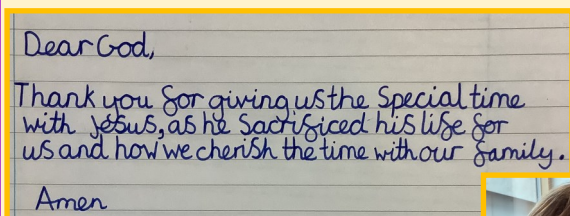 Dear God,
Thank you for giving us the special time
with Jesus, as he sacrificed his life for
us and how we cherish the time with our family.
Amen